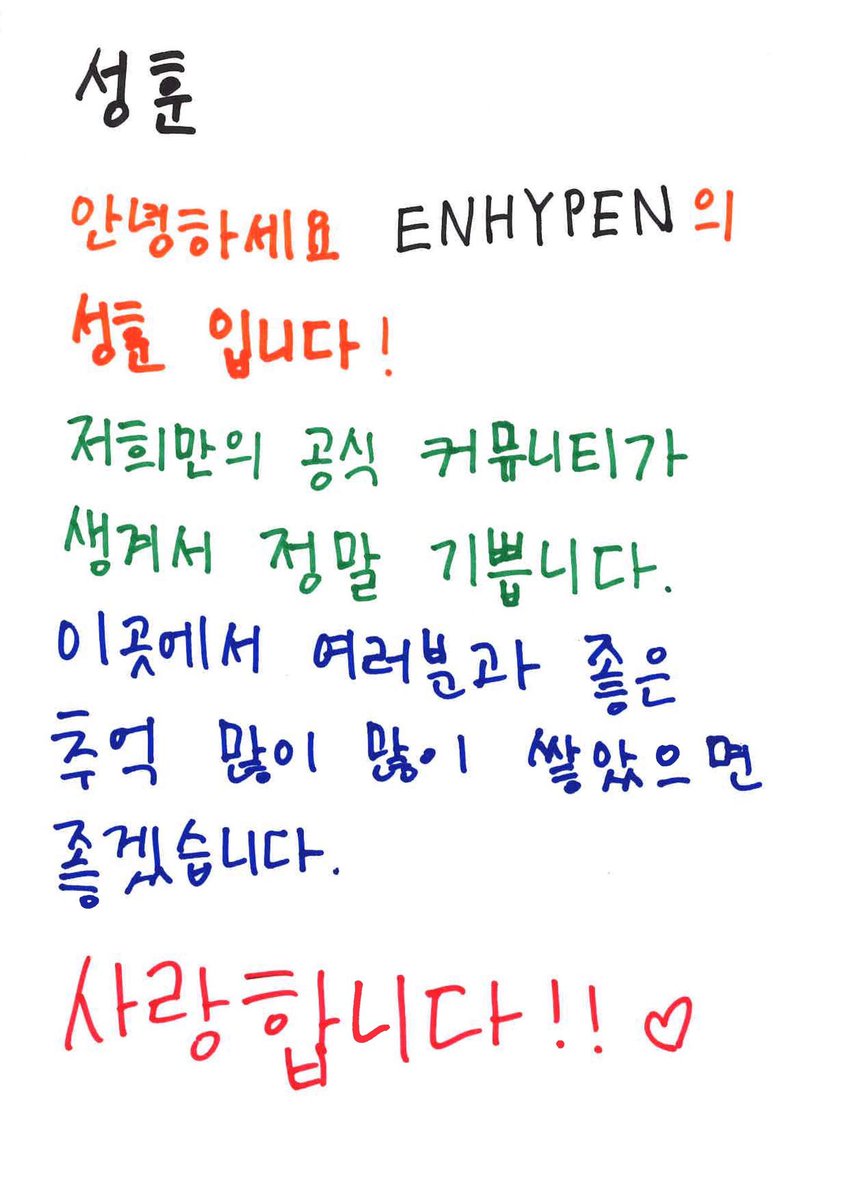 성훈
안녕하세요 ENHYPEN의
성훈 입니다!
저희만의 공식 커뮤니티가
생겨서 정말 기쁩니다.
이곳에서 여러분과 좋은
추억 많이 많이 쌓았으면
좋겠습니다.
사랑합니다!! ♡